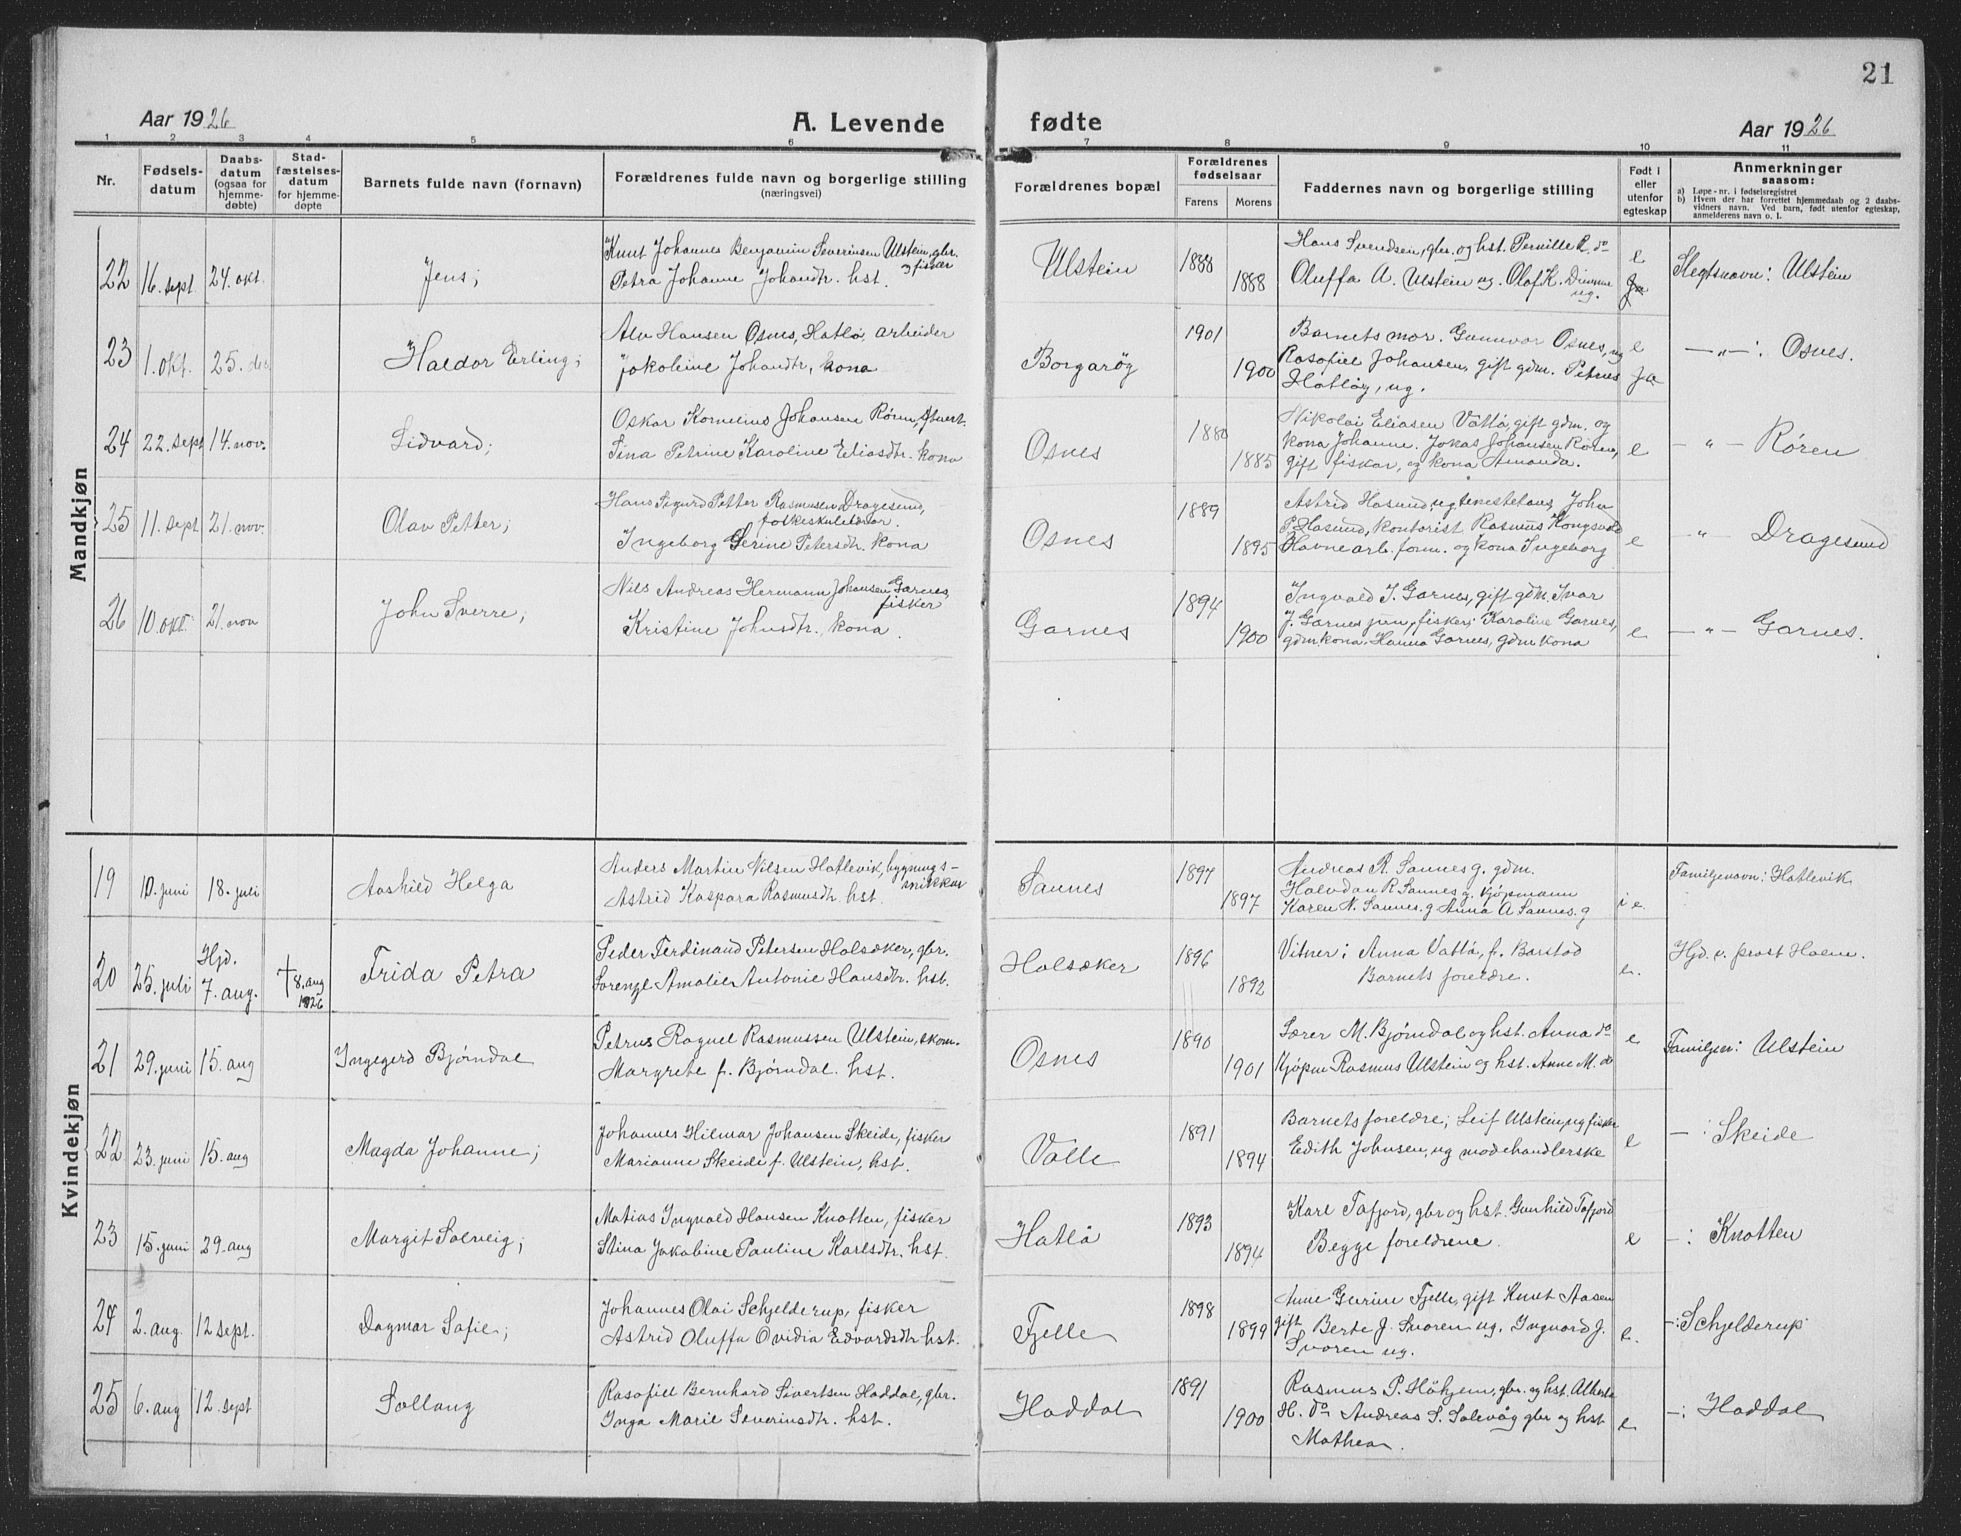 21
Aar 1926 A. Levende fødte Aar 1926
1 2 3 4 5 6 7 8 9 10 11
Nr. Fødsels-datum Daabs-datum (ogsaa for hjemme-døbte) Stad-fæstelses-datum for hjemme-døpte Barnets fulde navn (fornavn) Forældrenes fulde navn og borgerlige stilling (næringsvei) Forældrenes bopæl Forældrenes fødselsaar Farens Morens Faddernes navn og borgerlige stilling Født i eller utenfor egteskap Anmerkninger saasom:
a) Løpe-nr. i fødselsregistret
b) Hvem der har forrettet hjemmedaab og 2 daabs-vidners navn. Ved barn, født utenfor egteskap, anmelderens navn o. l.
Mandkjøn
22 16. sept 24. okt. Jens;
Knut Johannes Benjamin Severinsen Ulstein, gbr. og fisker
Petra Johanne Johandtr. hst.
Ulstein 1888 1888
Hans Svendsen, gbr. og hst. Pernille R. do
Oluffa A. Ulstein ug. Olaf K. Dimme ug.
e Slegtsnavn: Ulstein
23 1. okt. 25. des. Haldor Erling;
Alv Hansen Osnes, Hatlø, arbeider
Jakobine Johandtr., kona
Borgarøg 1901 1900
Barnets mor. Gunnvor Osnes, ug
Rasofiel Johansen, gift gdm. Petrus
Hatløy, ug.
e ja —„—: Osnes.
24 22. sept 14. nov. Sidvard;
Oskar Kornelius Johansen Røren,
Sina Petrine Karoline Eliasdtr. kona
Osnes 1880 1885
Nikolai Eliasen Vattø, gift gdm. og
kona Johanne. Jokas Johansen Røren,
gift fiskar, og kona Amanda.
e —„— Røren
25 11. sept 21. nov. Olav Petter;
Hans Sigurd Petter Rasmussen Dragesund,
folkeskulelærar.
Ingeborg Serine Petersdtr. kona
Osnes 1889 1895
Astrid Hasund, ug John
P. Hasund, kontorist Rasmus Kongsvold
Havnearb. form. og kona Ingeborg
e —„— Dragesund
26 10. okt. 21. nov John Sverre;
Nils Andreas Hermann Johansen Garnes,
fisker
Kristine Johnsdtr., kona.
Garnes 1894 1900
Ingvald J. Garnes, gift gdm. Ivar
J. Garnes jun, fisker; Karoline Garnes,
gdm.kona. Hanna Garnes, gdm kona
e —„— Garnes.
Kvindekjøn
19 10. juni 18. juli Aashild Helga
Anders Martin Nilsen Hatlevik, bygnings-snikkar
Astrid Kaspara Rasmusdtr. hst.
Sannes 1894 1897
Andreas R. Sannes g. gdm.
Halvdan R. Sannes g. kjøpmann
Karen N. Sannes. g Anna A Sannes. g
i e. Familjenavn: Hatlevik
20 25. juli Hjd. 7. aug. † 8. aug 1926 Frida Petra
Peder Ferdinand Petersen Holsæker, gbr.
Amalie Antonie Hansdtr. hst.
Holsæker 1896 1892
Vitner: Anna Vattø, f. Barstad
Barnets foreldre.
e. Hjd. v. prost Holm.
21 29. juni 15. aug Ingegerd Bjørndal
Petrus Raguel Rasmussen Ulstein, skom.
Margrete f. Bjørndal. hst.
Osnes 1890 1901
Lærer M. Bjørndal og hst. Anna do
Kjøpm Rasmus Ulstein og hst. Anne M. do
e Familjen: Ulstein
22 23. juni 15. aug Magda Johanne;
Johannes Hilmar Johansen Skeide, fisker
Marianne Skeide f. Ulstein, hst.
Valle 1891 1894
Barnets foreldre; Leif Ulstein, ug fisker
Edith Johnsen, ug modehandlerske
e — : Skeide
23 15. juni 29. aug Margit Solveig;
Matias Ingvald Hansen Knotten, fisker
Stina Jakobine Pauline Karlsdtr. hst.
Hatlø 1893 1894
Karl Tafjord, gbr og hst. Gunhild Tafjord
Begge foreldrene.
e — : Knotten
24 2. aug. 12 sept. Dagmar Sofie;
Johannes Olai Schjelderup, fisker
Astrid Oluffa Ovidia Edvardsdtr hst.
Fjelle 1898 1899
Anne Gurine Fjelle, gift Knut Aasen
gift Berte J. Svoren ug. Ingvard J.
Svoren ug.
e. —: Schjelderup
25 6. aug 12. sept Sollaug
Rasofiel Bernhard Sivertsen Haddal, gbr.
Inga Marie Severinsdtr. hst.
Haddal 1891 1900
Rasmus P. Høhjem, gbr. og hst. Alberta
H. do Andreas S. Solevåg gbr og hst
Mathea.
e —: Haddal